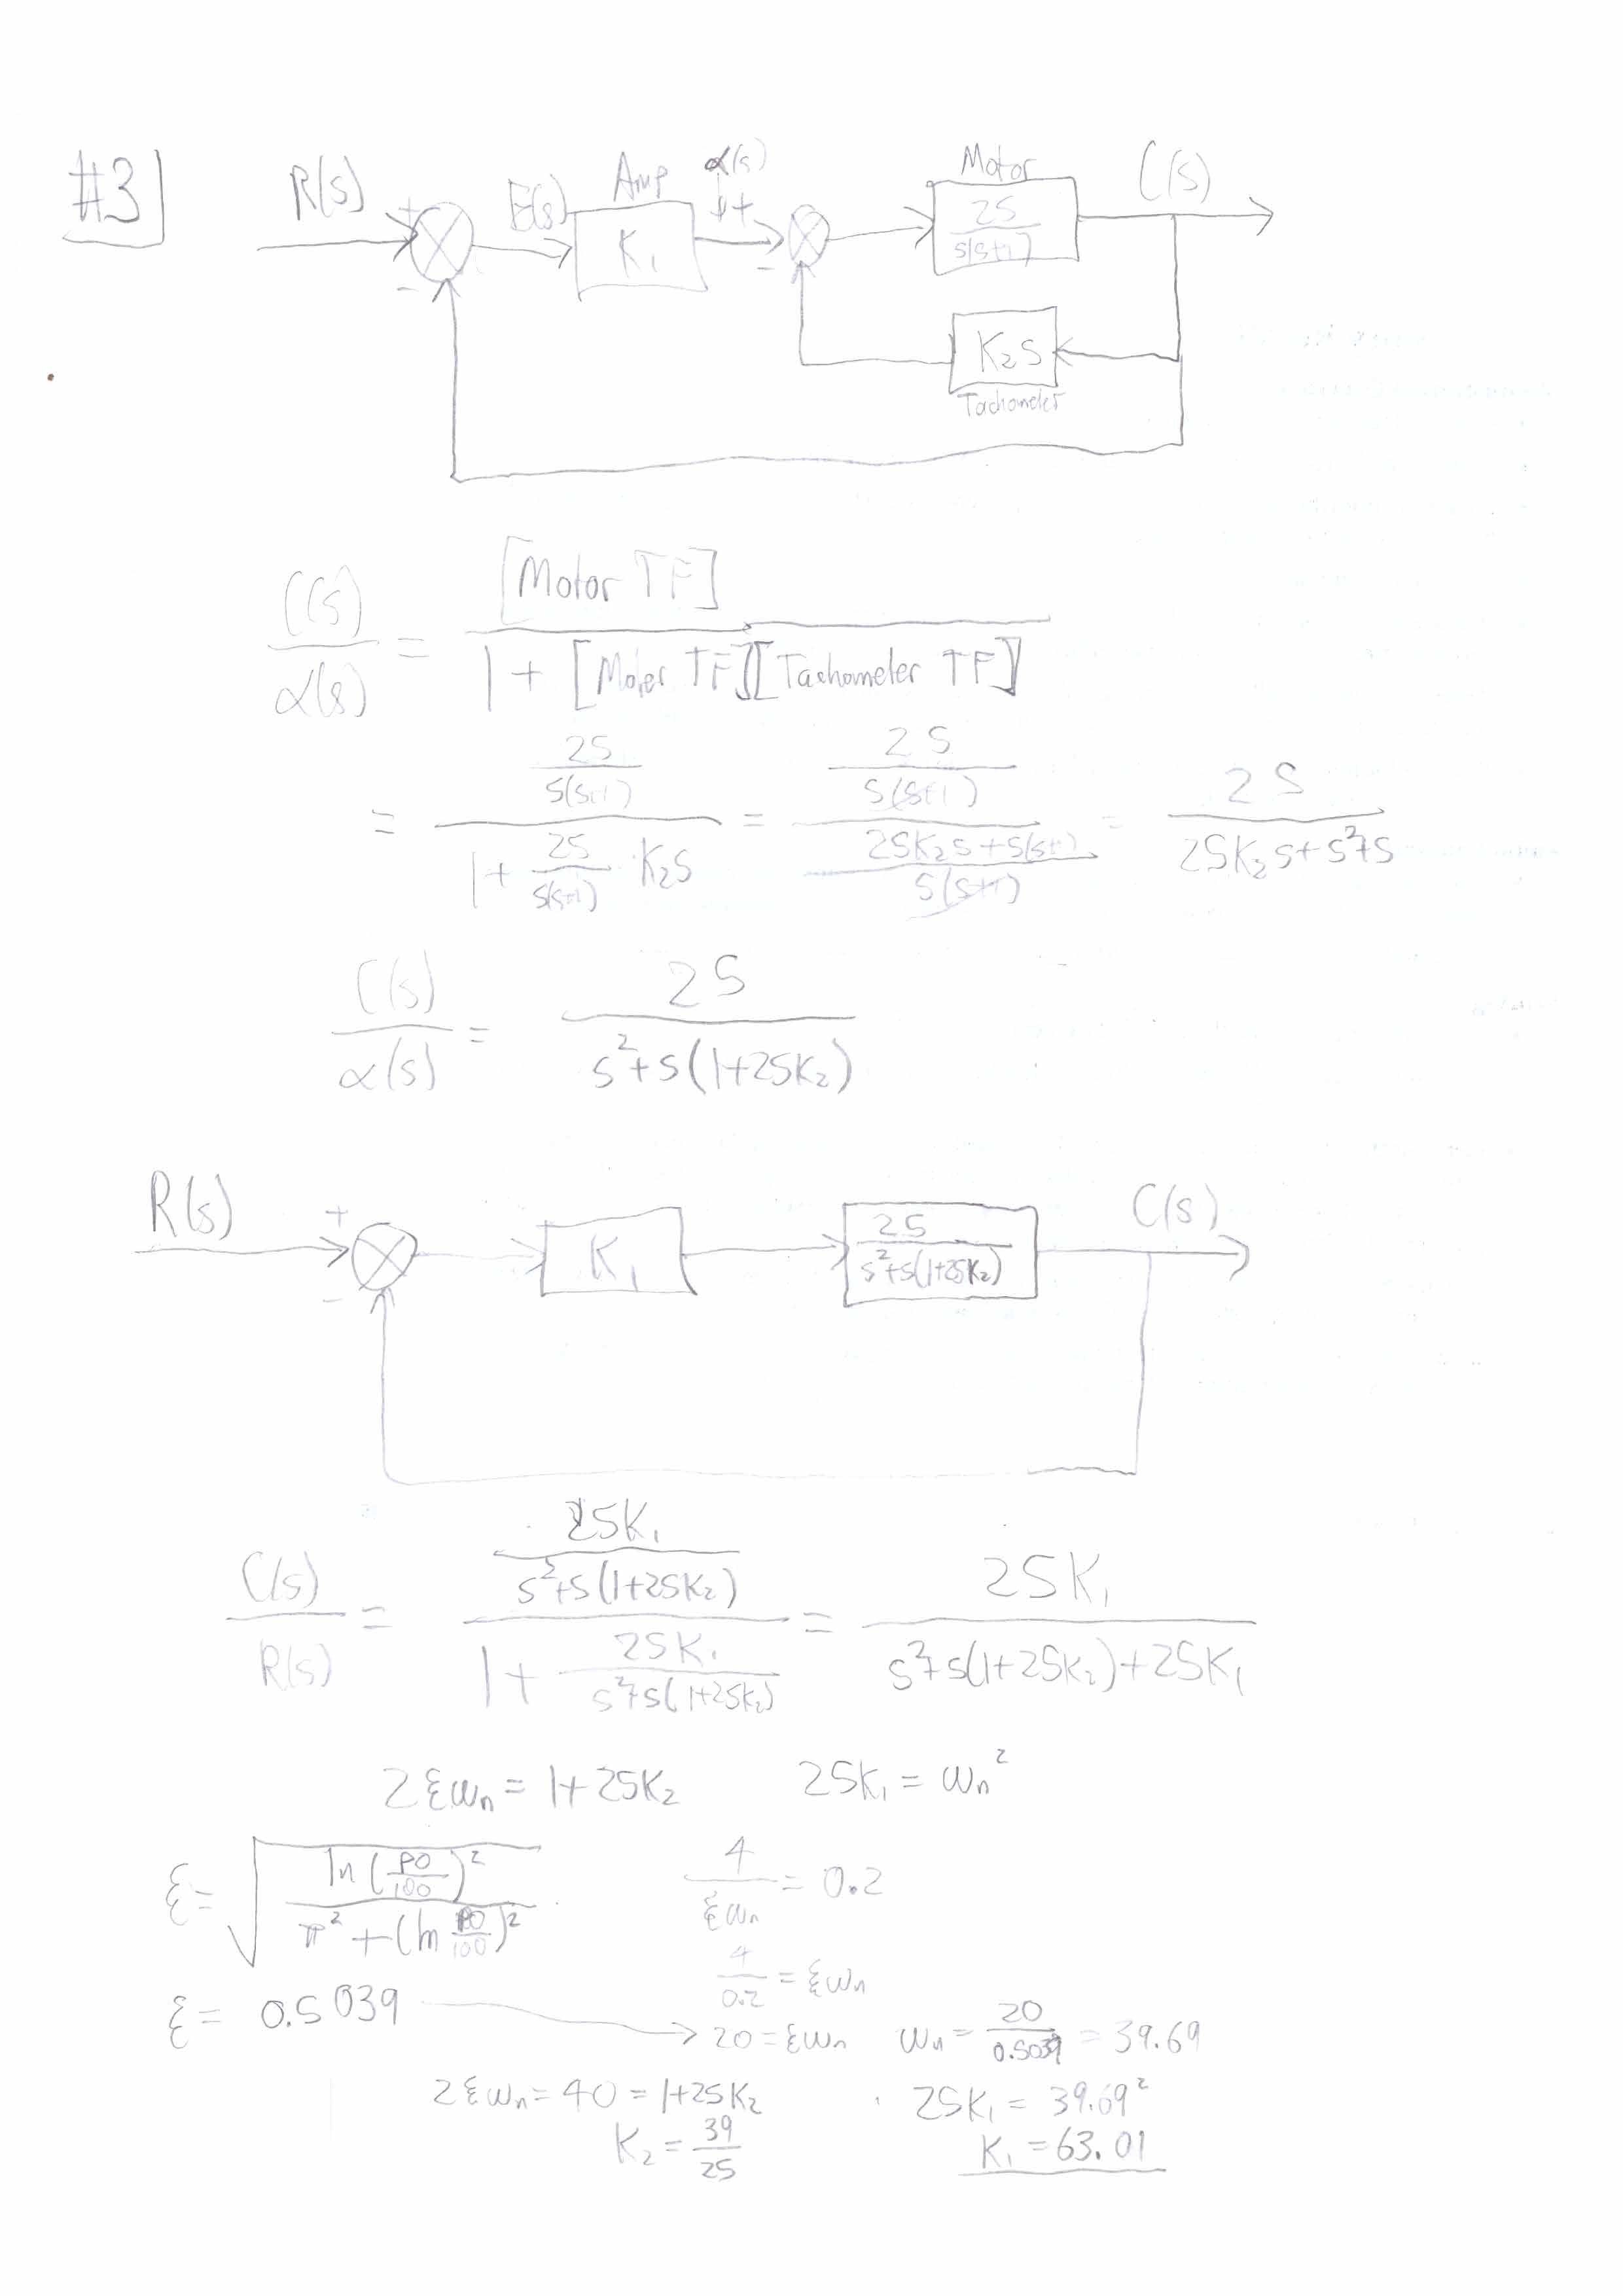 #3
R(s) + - E(s) Amp K₁ α(s) + - Motor 25/s(s+1) C(s)
K₂s
Tachometer
C(s)/α(s) = [Motor TF] / 1 + [Motor TF][Tachometer TF]
= (25/s(s+1)) / (1 + 25/s(s+1) · K₂s) = (25/s(s+1)) / ((25K₂s+s(s+1))/s(s+1)) = 25 / 25K₂s+s²+s
C(s)/α(s) = 25 / s²+s(1+25K₂)
R(s) + - K₁ 25/s²+s(1+25K₂) C(s)
C(s)/R(s) = (25K₁/s²+s(1+25K₂)) / (1 + 25K₁/s²+s(1+25K₂)) = 25K₁ / s²+s(1+25K₂)+25K₁
2ξωn = 1+25K₂ 25K₁ = ωn²
ξ = √(ln(PO/100)² / π²+(ln PO/100)²) 4/ξωn = 0.2
4/0.2 = ξωn
ξ = 0.5039 → 20 = ξωn ωn = 20/0.5039 = 39.69
2ξωn = 40 = 1+25K₂ 25K₁ = 39.69²
K₂ = 39/25 K₁ = 63.01